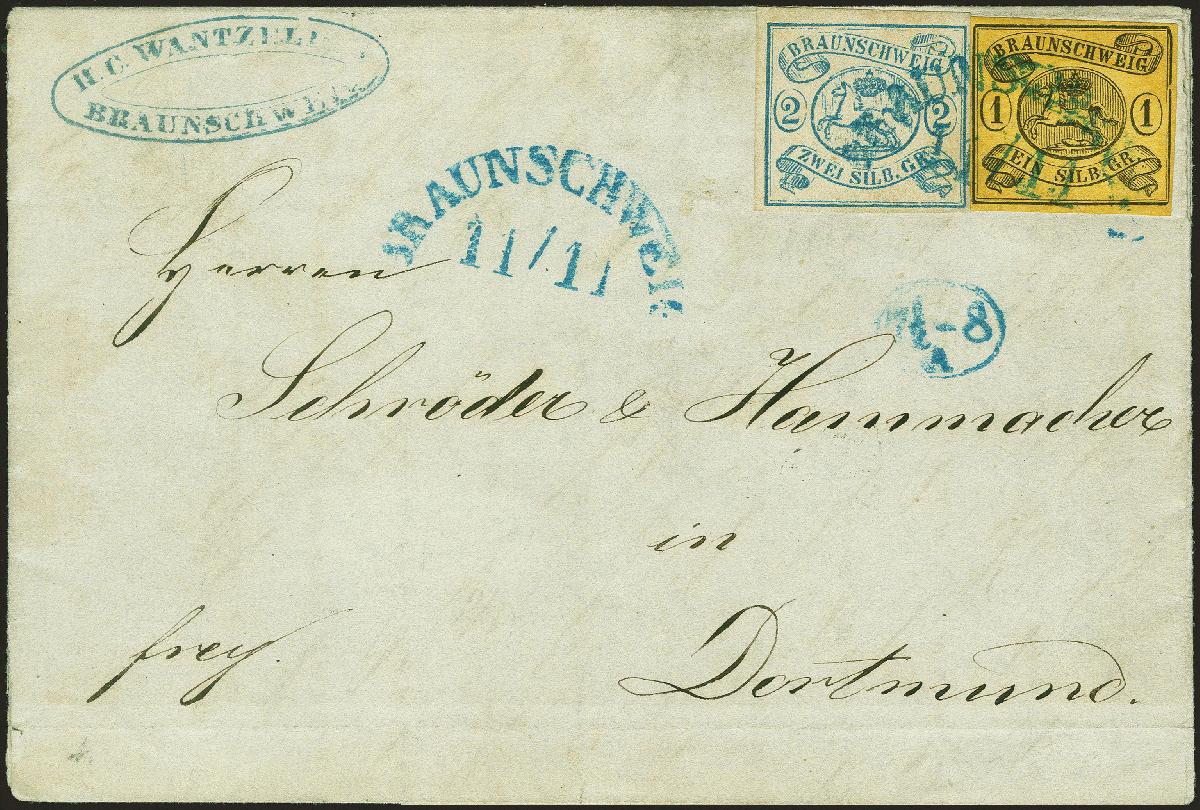 H. C. WANTZEL
BRAUNSCHWEIG
BRAUNSCHWEIG
2 2
ZWEI SILB. GR.
BRAUNSCHWEIG
1 1
EIN SILB. GR.
BRAUNSCHWEIG
11/11
Herren
8
A
Schröder & Hammacher
in
frey.
Dortmund.